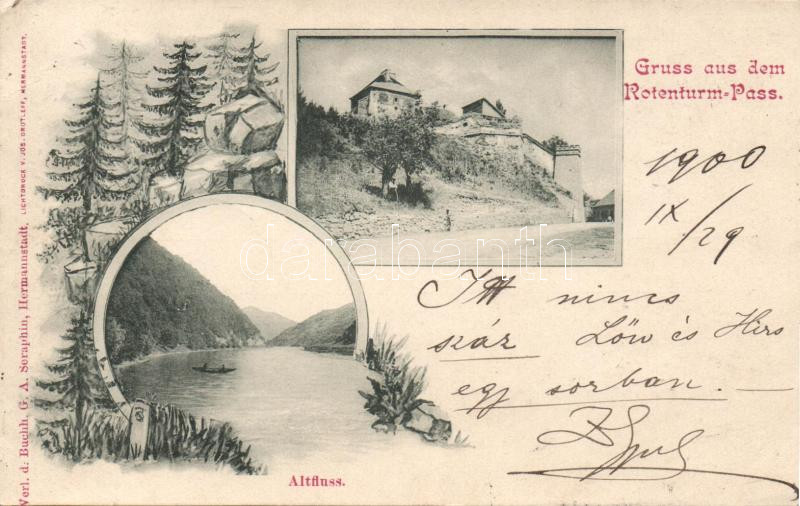 Gruss aus dem
Rotenturm-Pass.
1900
IX/29
Itt nincs
száz Löw és Hirs
egy sorban. —
Altfluss.
Verl. d. Buchh. G. A. Seraphin, Hermannstadt.
LICHTDRUCK V. JOS. DROTLEFF, HERMANNSTADT.
darabanth